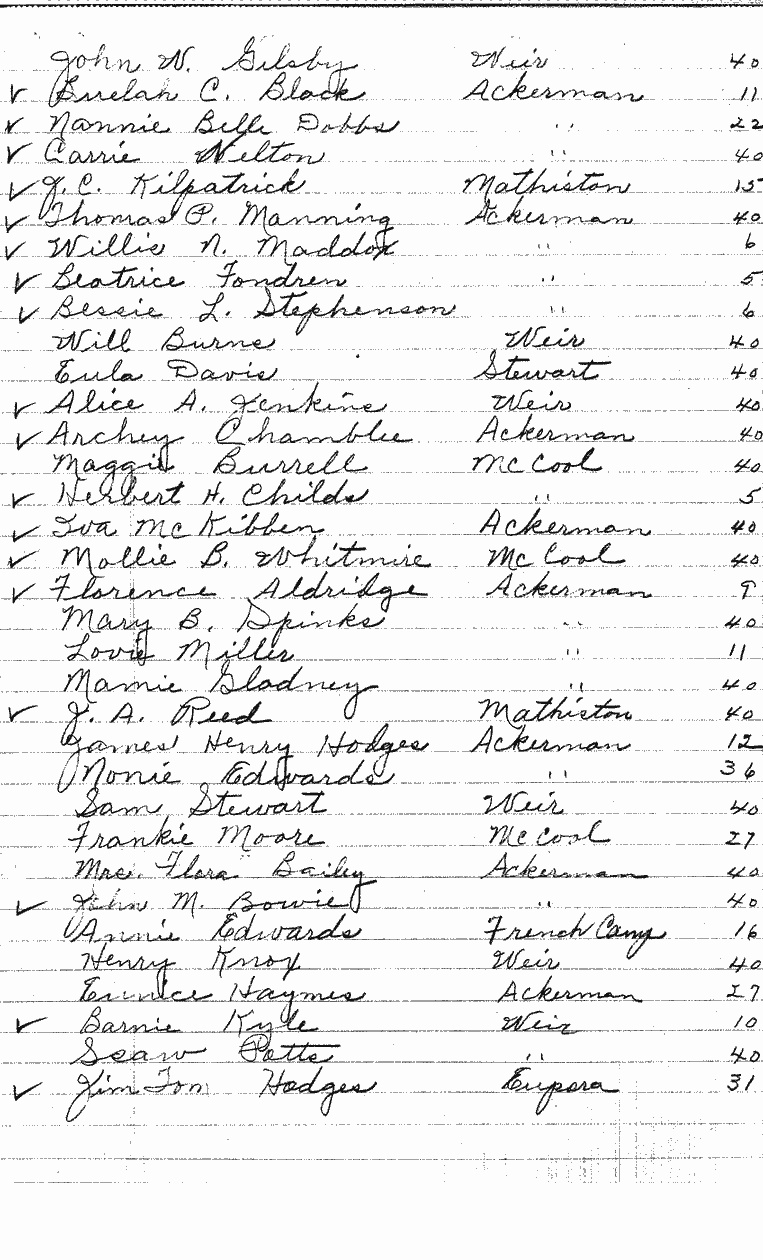 John W. Gilsby Weir 40
✓ Burelah C. Black Ackerman 11
✓ Nannie Belle Dobbs " 22
✓ Carrie Welton " 40
✓ J. C. Kilpatrick Mathiston 15
✓ Thomas P. Manning Ackerman 40
✓ Willie N. Maddox " 6
✓ Beatrice Fondren " 5
✓ Bessie L. Stephenson " 6
Will Burns Weir 40
Eula Davis Stewart 40
✓ Alice A. Jenkins Weir 40
✓ Archey Chamblee Ackerman 40
Maggie Burrell McCool 40
✓ Herbert H. Childs " 5
✓ Iva McKibben Ackerman 40
✓ Mollie B. Whitmire McCool 40
✓ Florence Aldridge Ackerman 9
Mary B. Spinks " 40
Lovie Miller " 11
Mamie Gladney " 40
✓ J. A. Reed Mathiston 40
James Henry Hodges Ackerman 12
Nonie Edwards " 36
Sam Stewart Weir 40
Frankie Moore McCool 27
Mrs. Flora Bailey Ackerman 40
✓ John M. Bowie " 40
Annie Edwards French Camp 16
Henry Knox Weir 40
Eunice Haymes Ackerman 27
✓ Barnie Kyle Weir 10
Seaw Potts " 40
✓ Jim Tom Hodges Eupora 31